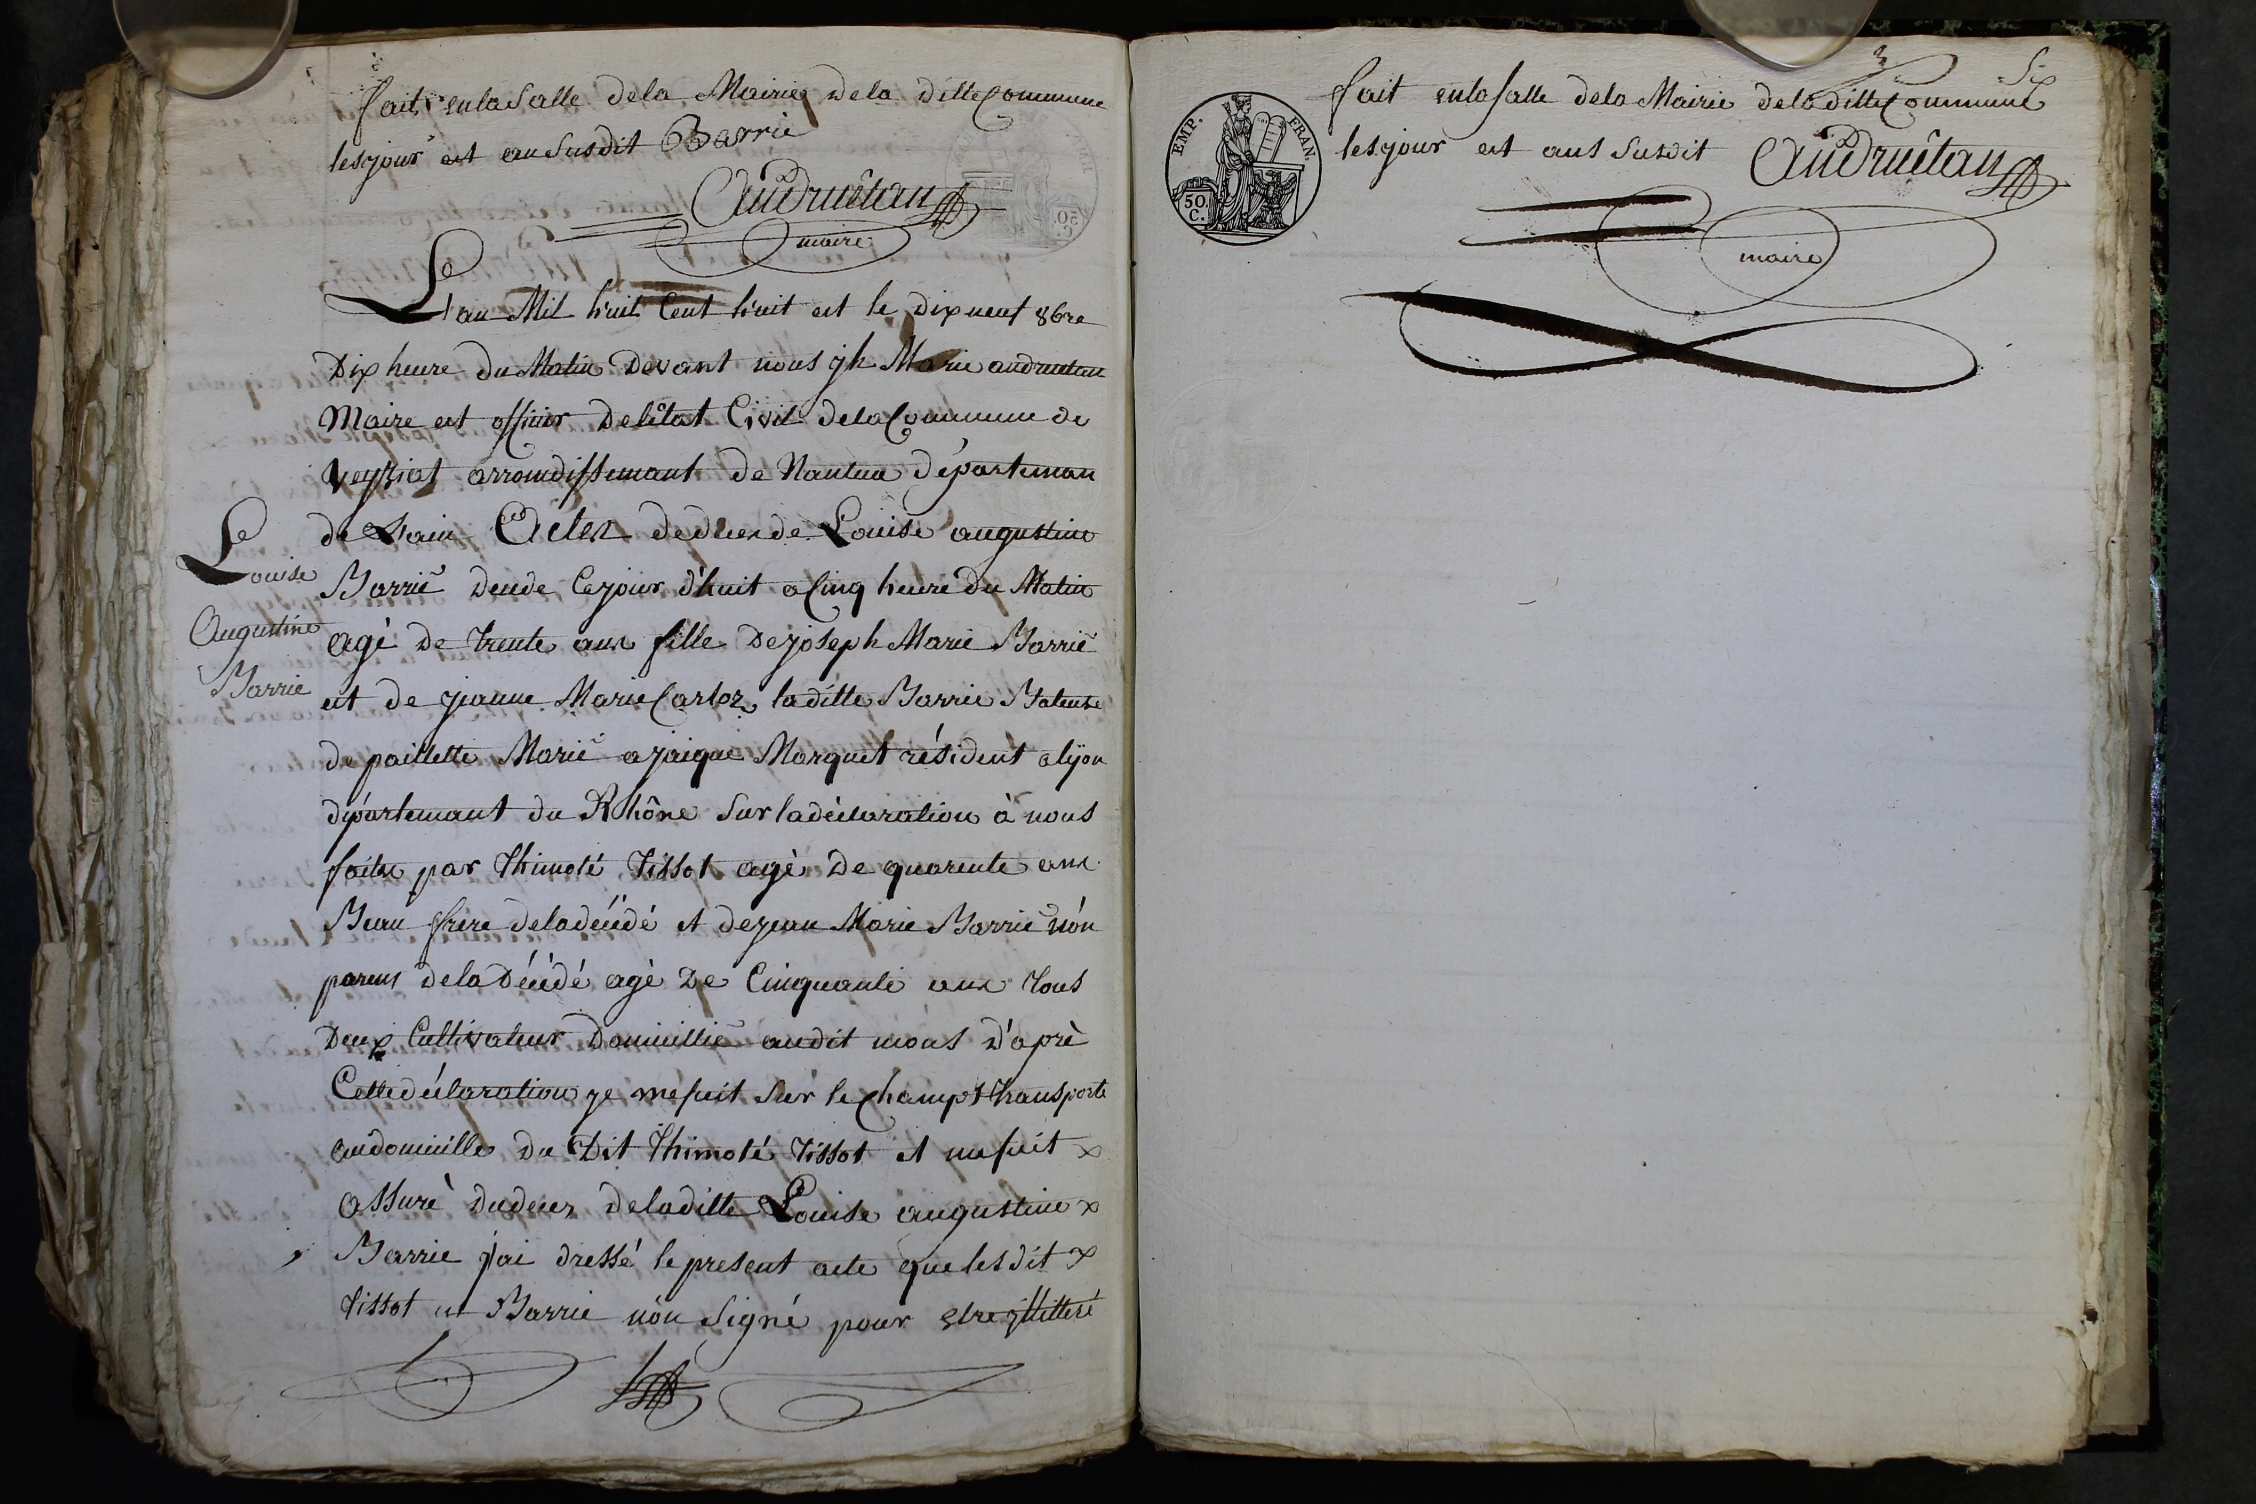 fait enlasalle dela Mairie Dela ditte Commune
lesjour et an susdit Barrie
Audruêtan
maire
L'an Mil huit Cent huit et le Dixneuf 8bre
Dix heure du Matin Devant nous jh Marie audruetan
Maire et officier Delétat Civil dela Commune de
Veyziat arrondissemant de Nantua départeman
de Lain Actez dedcez de Louise augustine
Barrié decde Cejour dhuit a Cinq heure du Matin
agé de trente anx fille Dejoseph Marie Barrié
et de jeanne Marie Carloz, laditte Barrie Bateuse
depaillette Marié ajaique Marquet résident alÿon
départemant du Rhône Sur ladéclaration à nous
faitex par Thimoté Tissot agé De quarente anx
Beau frere deladécédé et dejean Marie Barrié nón
parens dela Décédé agé De Cinquante anx tous
Deux Cultivateur Domicillié audit móns D'aprè
Cettedéclaration je mesuit Sur le champt transporté
audomicille du Dit Thimoté Tissot et mesuit
assuré dudecez deladitte Louise augustine
Barrie j'ai dressé le present acte que lesdit
tissot et Barrie nón Signé pour etre jllitteré
Louise
Augustine
Barrie
Six
EMP. FRAN.
50 C.
fait enlasalle dela Mairie deladitte Commune
lesjour et ans susdit Audruêtan
maire